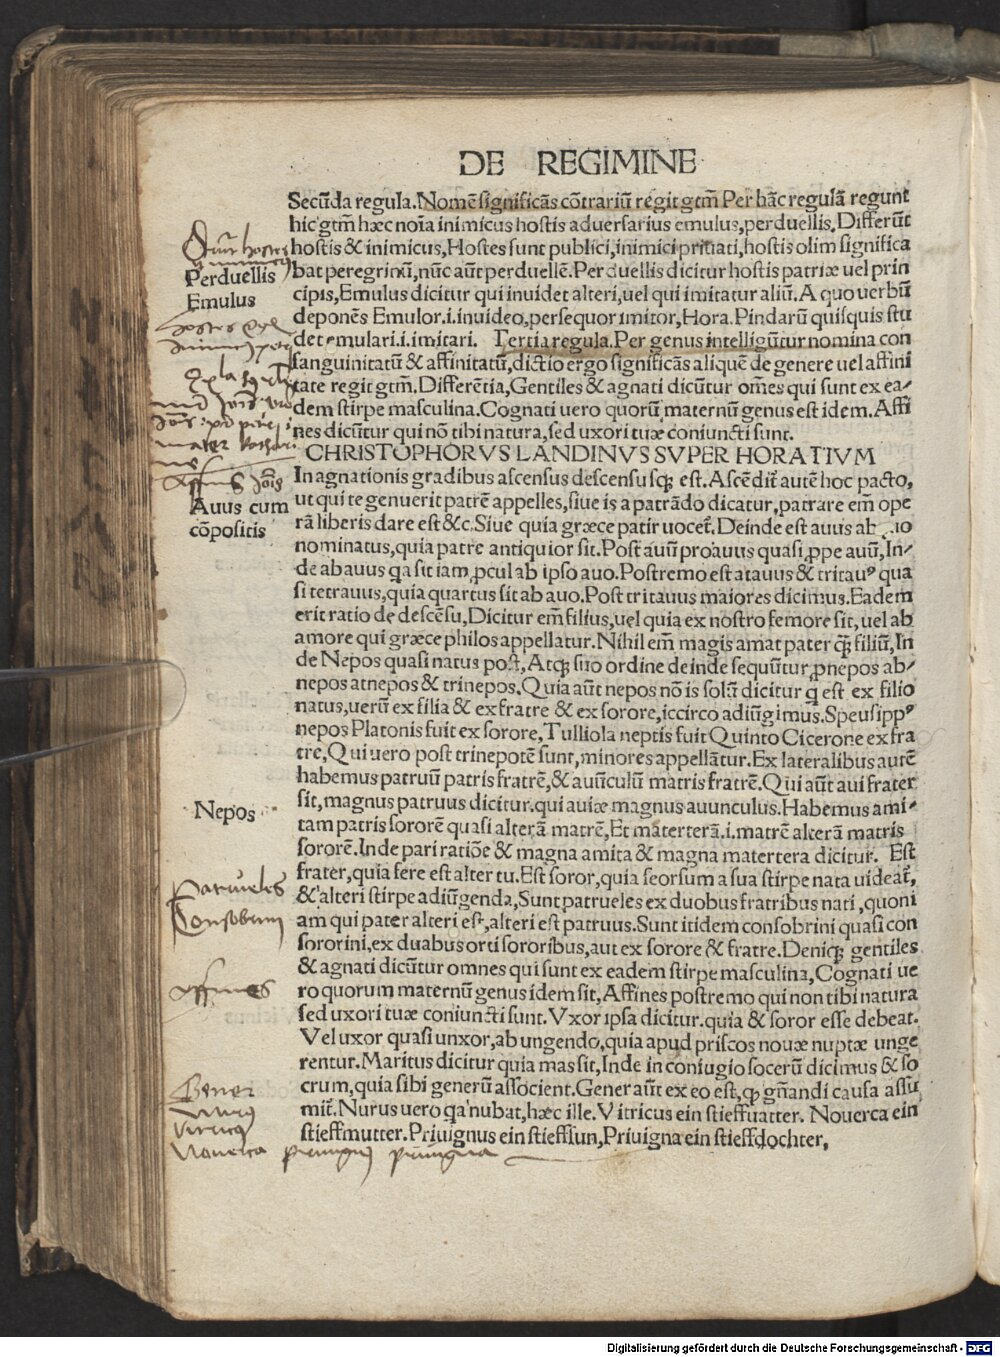 DE REGIMINE
Secūda regula. Nomē significās cōtrariū regit gtm̄ Per hāc regulā regunt
hic gtm̄ hæc noīa inimicus hostis aduersarius emulus, perduellis. Differūt
hostis & inimicus, Hostes sunt publici, inimici priuati, hostis olim significa
Perduellis
bat peregrinū, nūc aūt perduellē. Perduellis dicitur hostis patriæ uel prin
Emulus
cipis, Emulus dicitur qui inuidet alteri, uel qui imitatur aliū. A quo uerbū
deponēs Emulor .i. inuideo, persequor imitor, Hora. Pindarū quisquis stu
det emulari .i. imitari. Tertia regula. Per genus intelligūtur nomina con
sanguinitatū & affinitatū, dictio ergo significās aliquē de genere uel affini
tate regit gtm̄. Differētia, Gentiles & agnati dicūtur om̄es qui sunt ex ea⸗
dem stirpe masculina. Cognati uero quorū maternū genus est idem. Affi
nes dicūtur qui nō tibi natura, sed uxori tuæ coniuncti sunt.
CHRISTOPHORVS LANDINVS SVPER HORATIVM
In agnationis gradibus ascensus descensusqꝫ est. Ascēdit̄ autē hoc pacto,
Avus cum
ut qui te genuerit patrē appelles, siue is a patrādo dicatur, patrare em̄ ope
cōpositis
rā liberis dare est &c. Siue quia græce patir uocet̄. Deinde est auus ab
nominatus, quia patre antiquior sit. Post auū proauus quasi ꝓpe auū, In⸗
de abauus qa sit iam ꝓcul ab ipso auo. Postremo est atauus & tritauꝰ qua
si tetrauus, quia quartus sit ab auo. Post tritauus maiores dicimus. Eadem
erit ratio de descēsu, Dicitur em̄ filius, uel quia ex nostro femore sit, uel ab
amore qui græce philos appellatur. Nihil em̄ magis amat pater qꝫ̄ filiū, In
de Nepos quasi natus post, Atqꝫ suo ordine deinde sequūtur ꝓnepos ab⸗
nepos atnepos & trinepos. Quia aūt nepos nō is solū dicitur q̄ est ex filio
natus, uerū ex filia & ex fratre & ex sorore, iccirco adiūgimus. Speusippꝰ
nepos Platonis fuit ex sorore, Tulliola neptis fuit Quinto Cicerone ex fra
tre, Qui uero post trinepotē sunt, minores appellātur. Ex lateralibus autē
habemus patruū patris fratrē, & auūculū matris fratrē. Qui aūt aui frater
Nepos
sit, magnus patruus dicitur. qui auiæ magnus auunculus. Habemus ami⸗
tam patris sororē quasi alterā matrē, Et materterā .i. matrē alterā matris
sororē. Inde pari ratiōe & magna amita & magna matertera dicitur. Est
frater, quia fere est alter tu. Est soror, quia seorsum a sua stirpe nata uideat̄,
Patrueles
& alteri stirpe adiūgenda, Sunt patrueles ex duobus fratribus nati, quoni
Consobrini
am qui pater alteri est, alteri est patruus. Sunt itidem consobrini quasi con
sororini, ex duabus orti sororibus, aut ex sorore & fratre. Deniqꝫ gentiles
& agnati dicūtur omnes qui sunt ex eadem stirpe masculina, Cognati ue
Affines
ro quorum maternū genus idem sit, Affines postremo qui non tibi natura
sed uxori tuæ coniuncti sunt. Vxor ipsa dicitur. quia & soror esse debeat.
Vel uxor quasi unxor, ab ungendo, quia apud priscos nouæ nuptæ unge
rentur. Maritus dicitur quia mas sit, Inde in coniugio socerū dicimus & so
Gener
crum, quia sibi generū associent. Gener aūt ex eo est, qꝫ gn̄andi causa assu
Nurus
mit̄. Nurus uero qa nubat, hæc ille. Vitricus ein stieffuatter. Nouerca ein
Vitricus
stieffmutter. Priuignus ein stieffsun, Priuigna ein stieffdochter.
Noverca privignus privigna
Digitalisierung gefördert durch die Deutsche Forschungsgemeinschaft - DFG